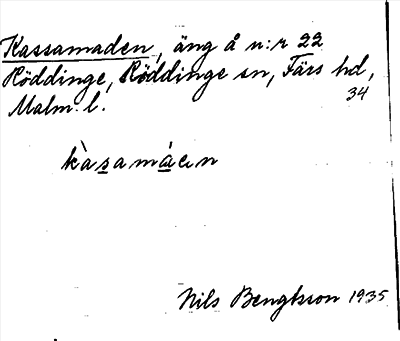 Kassamaden, äng å n:r 22
Röddinge, Röddinge sn, Färs hd,
Malm. l. 34
kàsamáen
Nils Bengtsson 1935